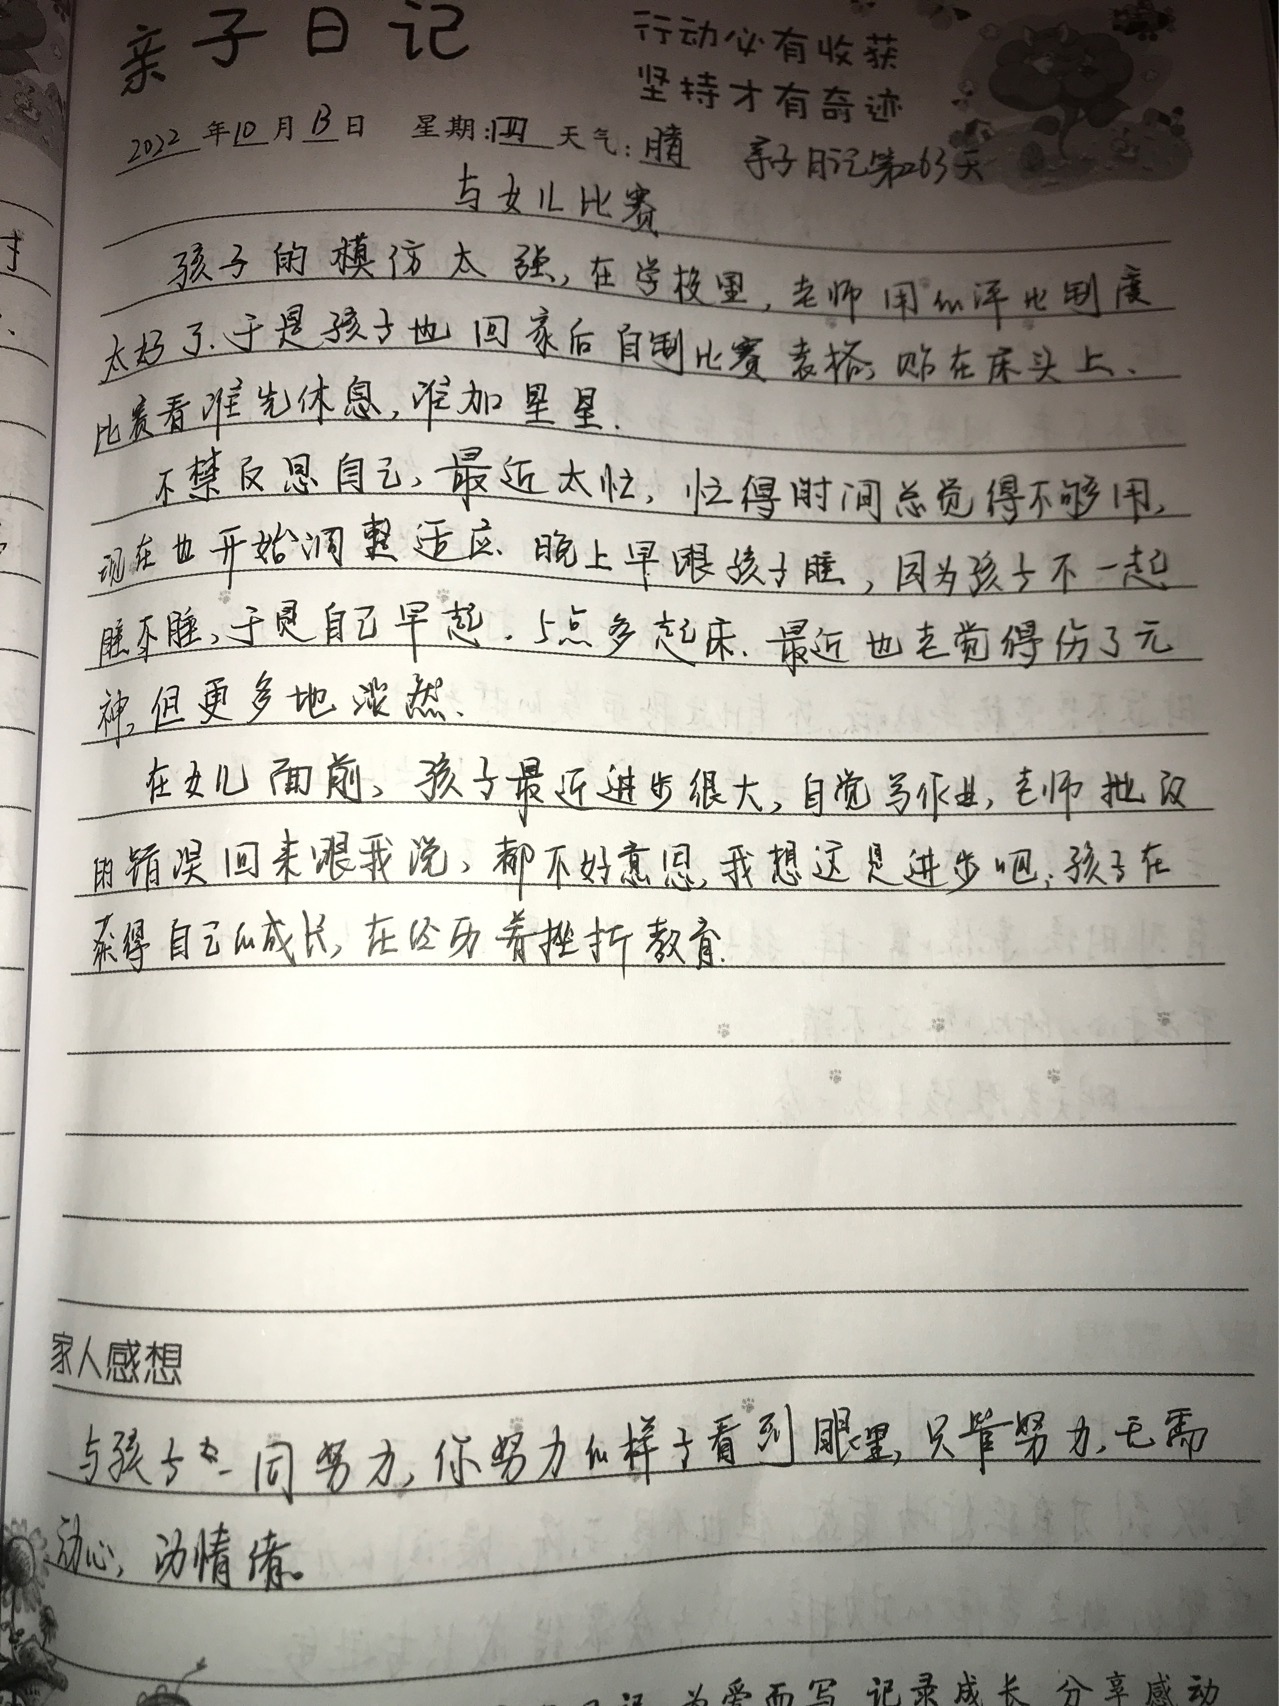 亲子日记
行动必有收获
坚持才有奇迹
2022年10月13日 星期:四 天气:晴 亲子日记第263天
与女儿比赛
孩子的模仿太强,在学校里,老师用的评比制度
太好了.于是孩子也回家后自制比赛表格,贴在床头上、
比赛看谁先休息,谁加星星.
不禁反思自己,最近太忙,忙得时间总觉得不够用,
现在也开始调整适应.晚上早跟孩子睡,因为孩子不一起
睡不睡,于是自己早起.5点多起床.最近也老觉得伤了元
神,但更多地淡然.
在女儿面前,孩子最近进步很大,自觉写作业,老师批改
的错误回来跟我说,都不好意思,我想这是进步吧.孩子在
获得自己的成长,在经历着挫折教育.
家人感想
与孩子一同努力,你努力的样子看到眼里,只管努力,无需
动心,动情绪。
为爱而写 记录成长 分享感动